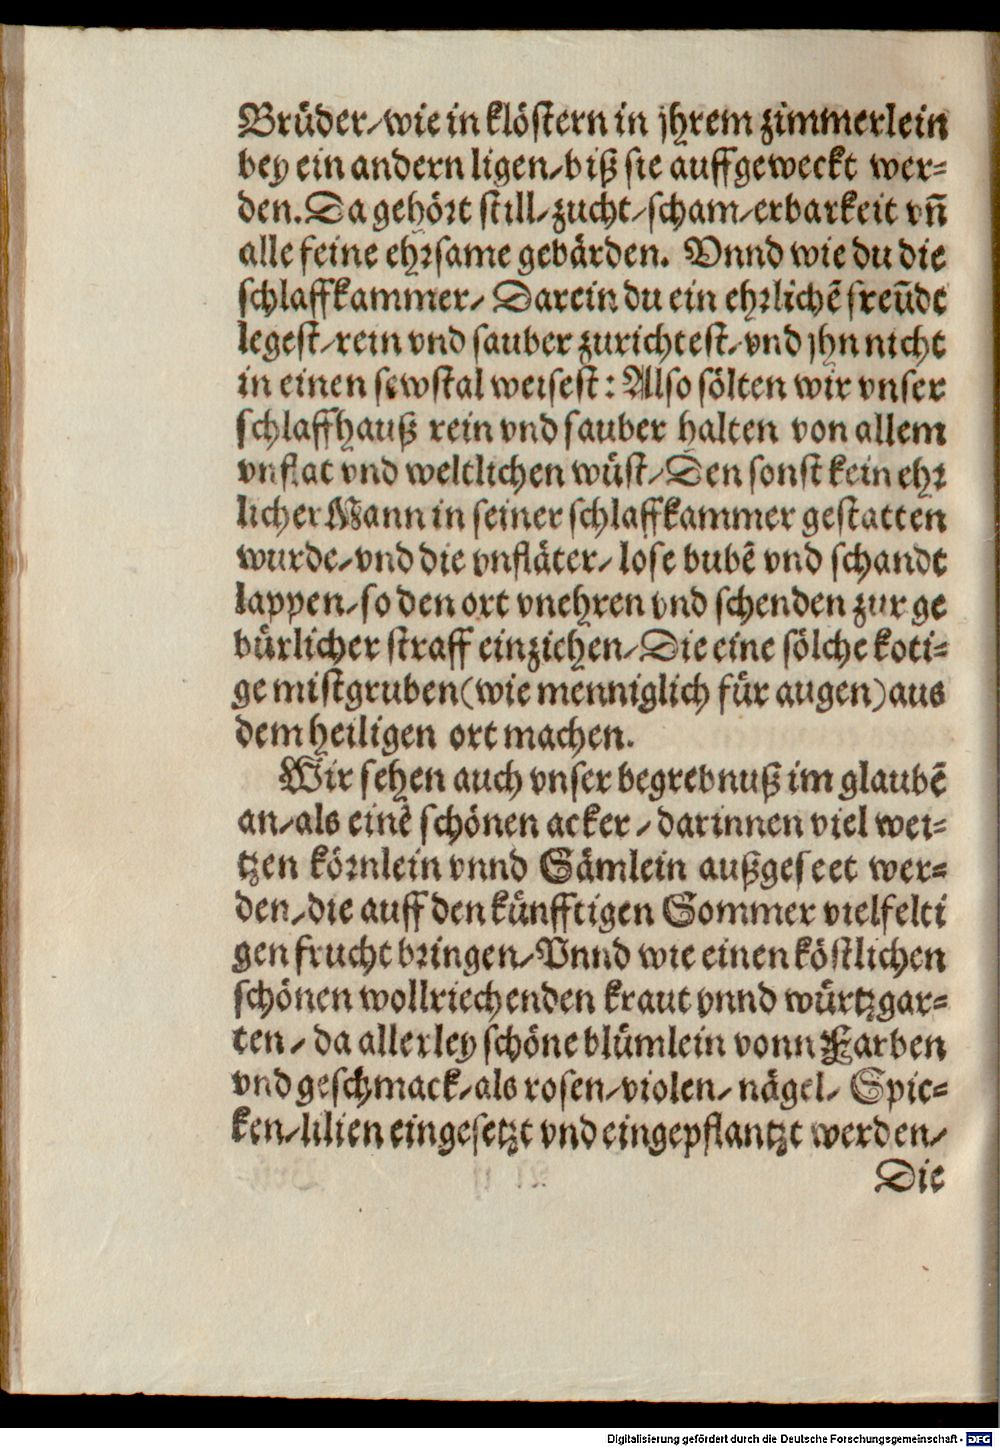 Brüder/wie in klöstern in jhrem zimmerlein
bey ein andern ligen/biß sie auffgeweckt wer-
den. Da gehört still/zucht/scham/erbarkeit vñ
alle feine ehrsame gebärden. Vnnd wie du die
schlaffkammer/ Darein du ein ehrlichẽ freũdt
legest/rein vnd sauber zurichtest/vnd jhn nicht
in einen sewstal weisest: Also sölten wir vnser
schlaffhauß rein vnd sauber halten von allem
vnflat vnd weltlichen wüst/Den sonst kein ehr
licher Mann in seiner schlaffkammer gestatten
wurde/vnd die vnfläter/ lose bubẽ vnd schandt
lappen/so den ort vnehren vnd schenden zur ge
bürlicher straff einziehen/Die eine sölche koti-
ge mistgruben(wie menniglich für augen)aus
dem heiligen ort machen.
Wir sehen auch vnser begrebnuß im glaubẽ
an/als einẽ schönen acker/darinnen viel wei-
tzen körnlein vnnd Sämlein außgeseet wer-
den/die auff den künfftigen Sommer vielfelti
gen frucht bringen/Vnnd wie einen köstlichen
schönen wollriechenden kraut vnnd würtzgar-
ten/ da allerley schöne blümlein vonn Farben
vnd geschmack/als rosen/violen/ nägel/ Spic-
ken/lilien eingesetzt vnd eingepflantzt werden/
Die
Digitalisierung gefördert durch die Deutsche Forschungsgemeinschaft - DFG